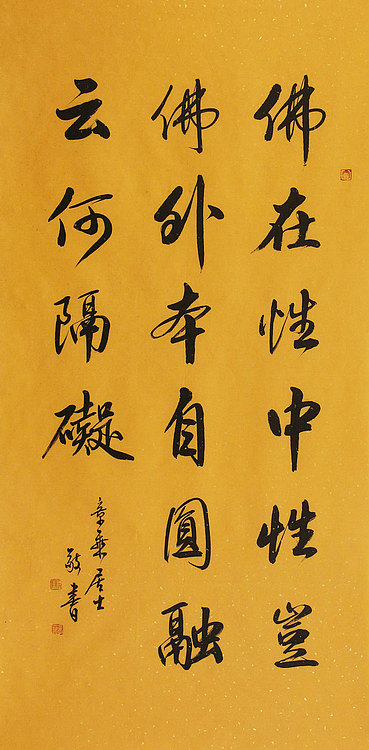 佛在性中性豈
佛外本自圓融
云何隔礙
章乘居士
敬書